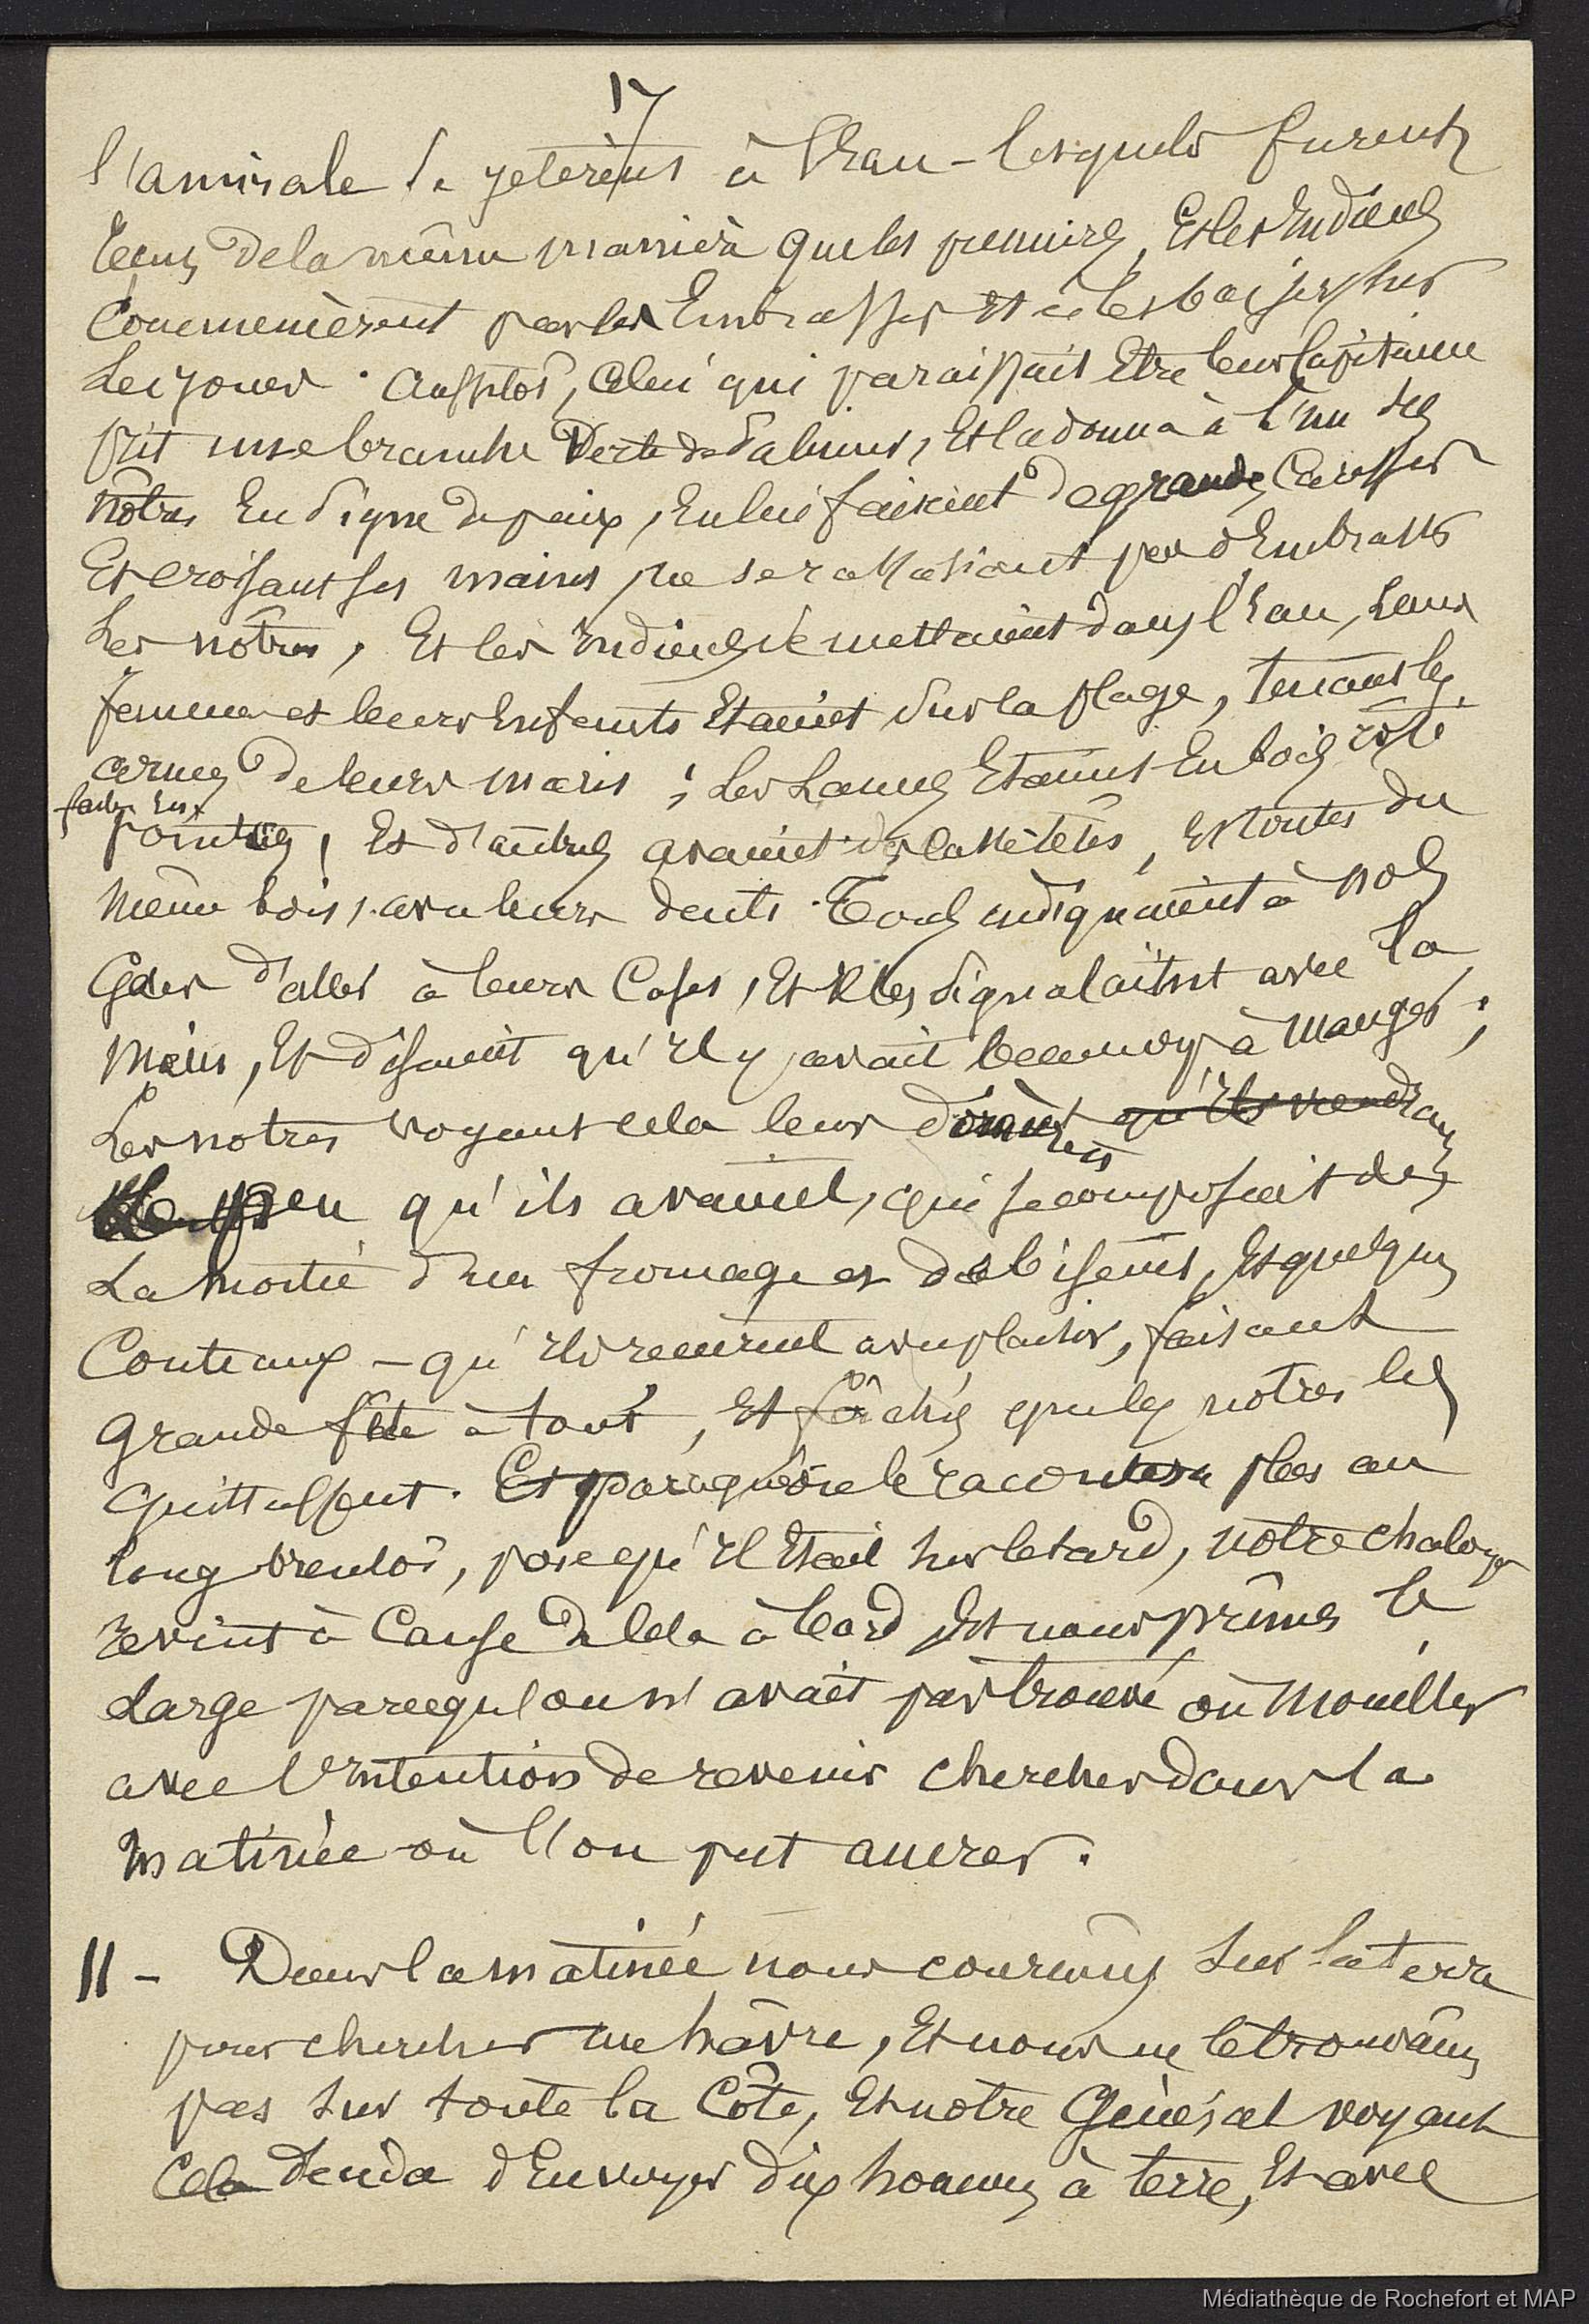 17
l'amirale se jetèrent à l'Eau - lesquels furent
reçus de la même manière que les premiers, Et les Indiens
Commencèrent par les Embrasser Et à les baiser sur
Les joues. Aussitôt, celui qui paraissait Etre leur Capitaine
prit une branche Verte de Palmier, Et la donna à l'un des
nôtres En signe de paix, En lui faisant de grandes Caresses
Et croisant ses mains ne se rassasiant pas d'Embrasser
Les nôtres, Et les Indiens se mettaient dans l'Eau, Leurs
femmes et leurs Enfants Etaient sur la plage, tenant les
armes de leurs maris ; Les Lances Etaient En bois rôti
pointues, Et d'autres avaient des, Et toutes du
même bois, avec leurs dents. Tous indiquaient à nos
Gens d'aller à leurs Cases, Et Ils les signalaient avec la
main, Et disaient qu'Il y avait beaucoup à manger ;
Les notres voyant cela leur donnèrent qu'Ils
Le peu qu'ils avaient, qui se composait de
La moitié d'un fromage et de biscuits, Et quelques
Couteaux - qu'Ils reçurent avec plaisir, faisant
grande fête à tout, Et fâchés que les notres les
quittassent. Et pour que je le raconte plus au
long bientôt, parcequ'Il Etait sur le tard, notre chaloupe
revint à Cause de cela à bord Et nous prîmes le
Large parcequ'on n'avait pas trouvé où Mouiller
avec l'Intention de revenir chercher dans la
Matinée où l'on put ancrer.
11 - Dans la matinée nous courûmes sur la terre
pour chercher un hâvre, Et nous ne le trouvâmes
pas sur toute la Côte, Et notre Général voyant
Cela décida d'Envoyer dix hommes à terre, Et avec
Médiathèque de Rochefort et MAP